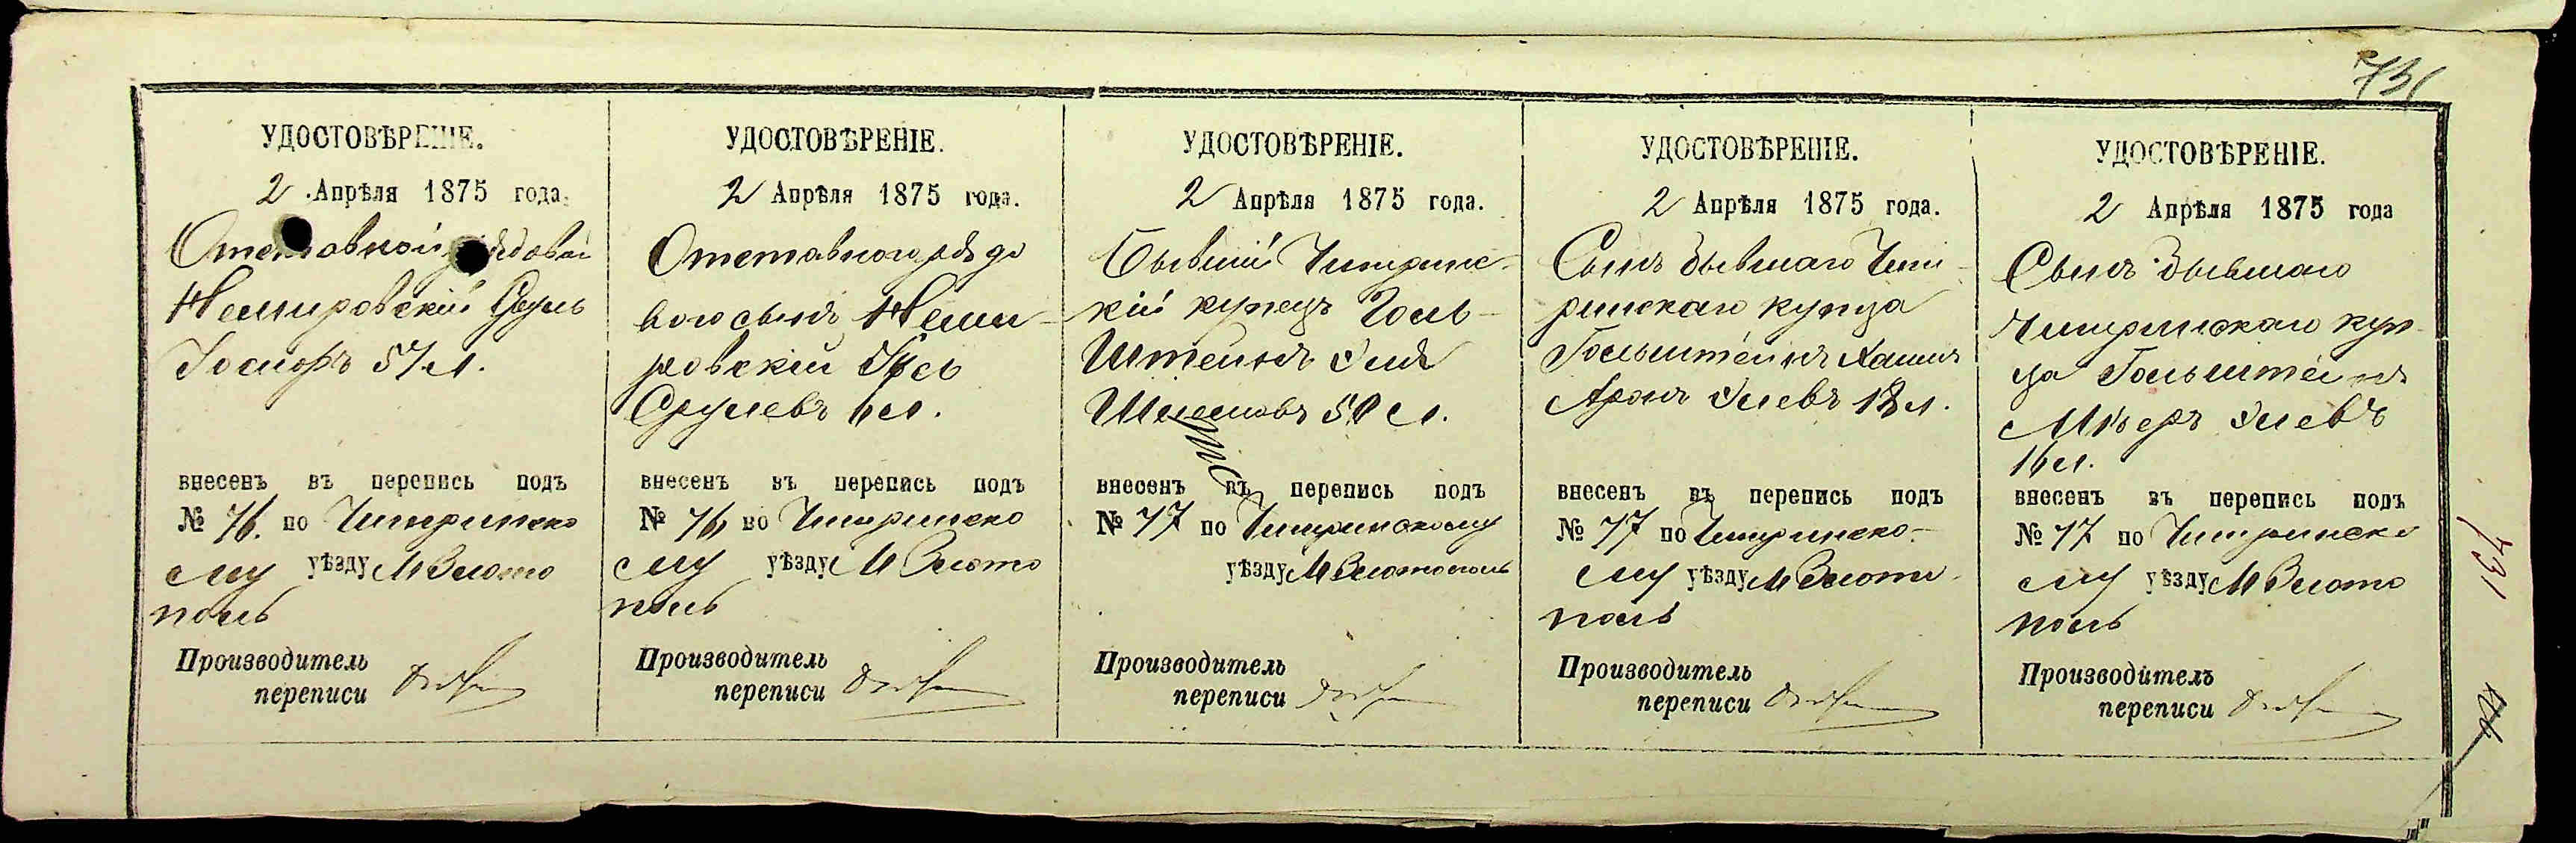 731
УДОСТОВѢРЕНІЕ.
2 Апрѣля 1875 года.
Отставной рядовой
Немировскій Сруль
57 л.
внесенъ въ перепись подъ
№ 76. по Чигиринско
му уѣзду М Злото
поль
Производитель
переписи
УДОСТОВѢРЕНІЕ.
2 Апрѣля 1875 года.
Отставного рядо
вого сынъ Неми-
ровскій
Срулевъ л.
внесенъ въ перепись подъ
№ 76 по Чигиринско
му уѣзду М Злото
поль
Производитель
переписи
УДОСТОВѢРЕНІЕ.
2 Апрѣля 1875 года.
Бывшій Чигиринс-
кій купецъГоль-
штейнъ
50 л.
внесенъ въ перепись подъ
№ 77 по Чигиринскому
уѣзду М Злотополь
Производитель
переписи
УДОСТОВѢРЕНІЕ.
2 Апрѣля 1875 года.
Сынъ бывшаго Чиги-
ринскаго купца
Гольштейнъ Хаимъ
Аронъ 18 л.
внесенъ въ перепись подъ
№ 77 по Чигиринско-
му уѣзду М Злото-
поль
Производитель
переписи
УДОСТОВѢРЕНІЕ.
2 Апрѣля 1875 года
Сынъ бывшаго
Чигиринскаго куп-
ца Гольштейнъ
Мееръ
16 л.
внесенъ въ перепись подъ
№ 77 по Чигиринско
му уѣзду М Злото
поль
Производитель
переписи
731